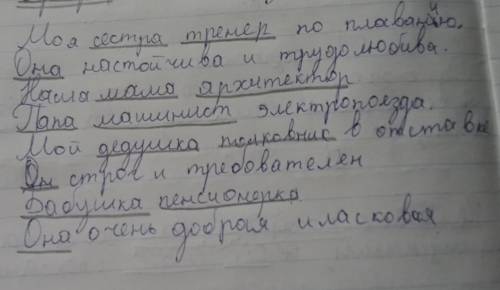 Моя сестра тренер по плаванию.
Она настойчива и трудолюбива.
Наша мама архитектор
Папа машинист электропоезда.
Мой дедушка полковник в отставке
Он строг и требователен
Бабушка пенсионерка
Она очень добрая и ласковая